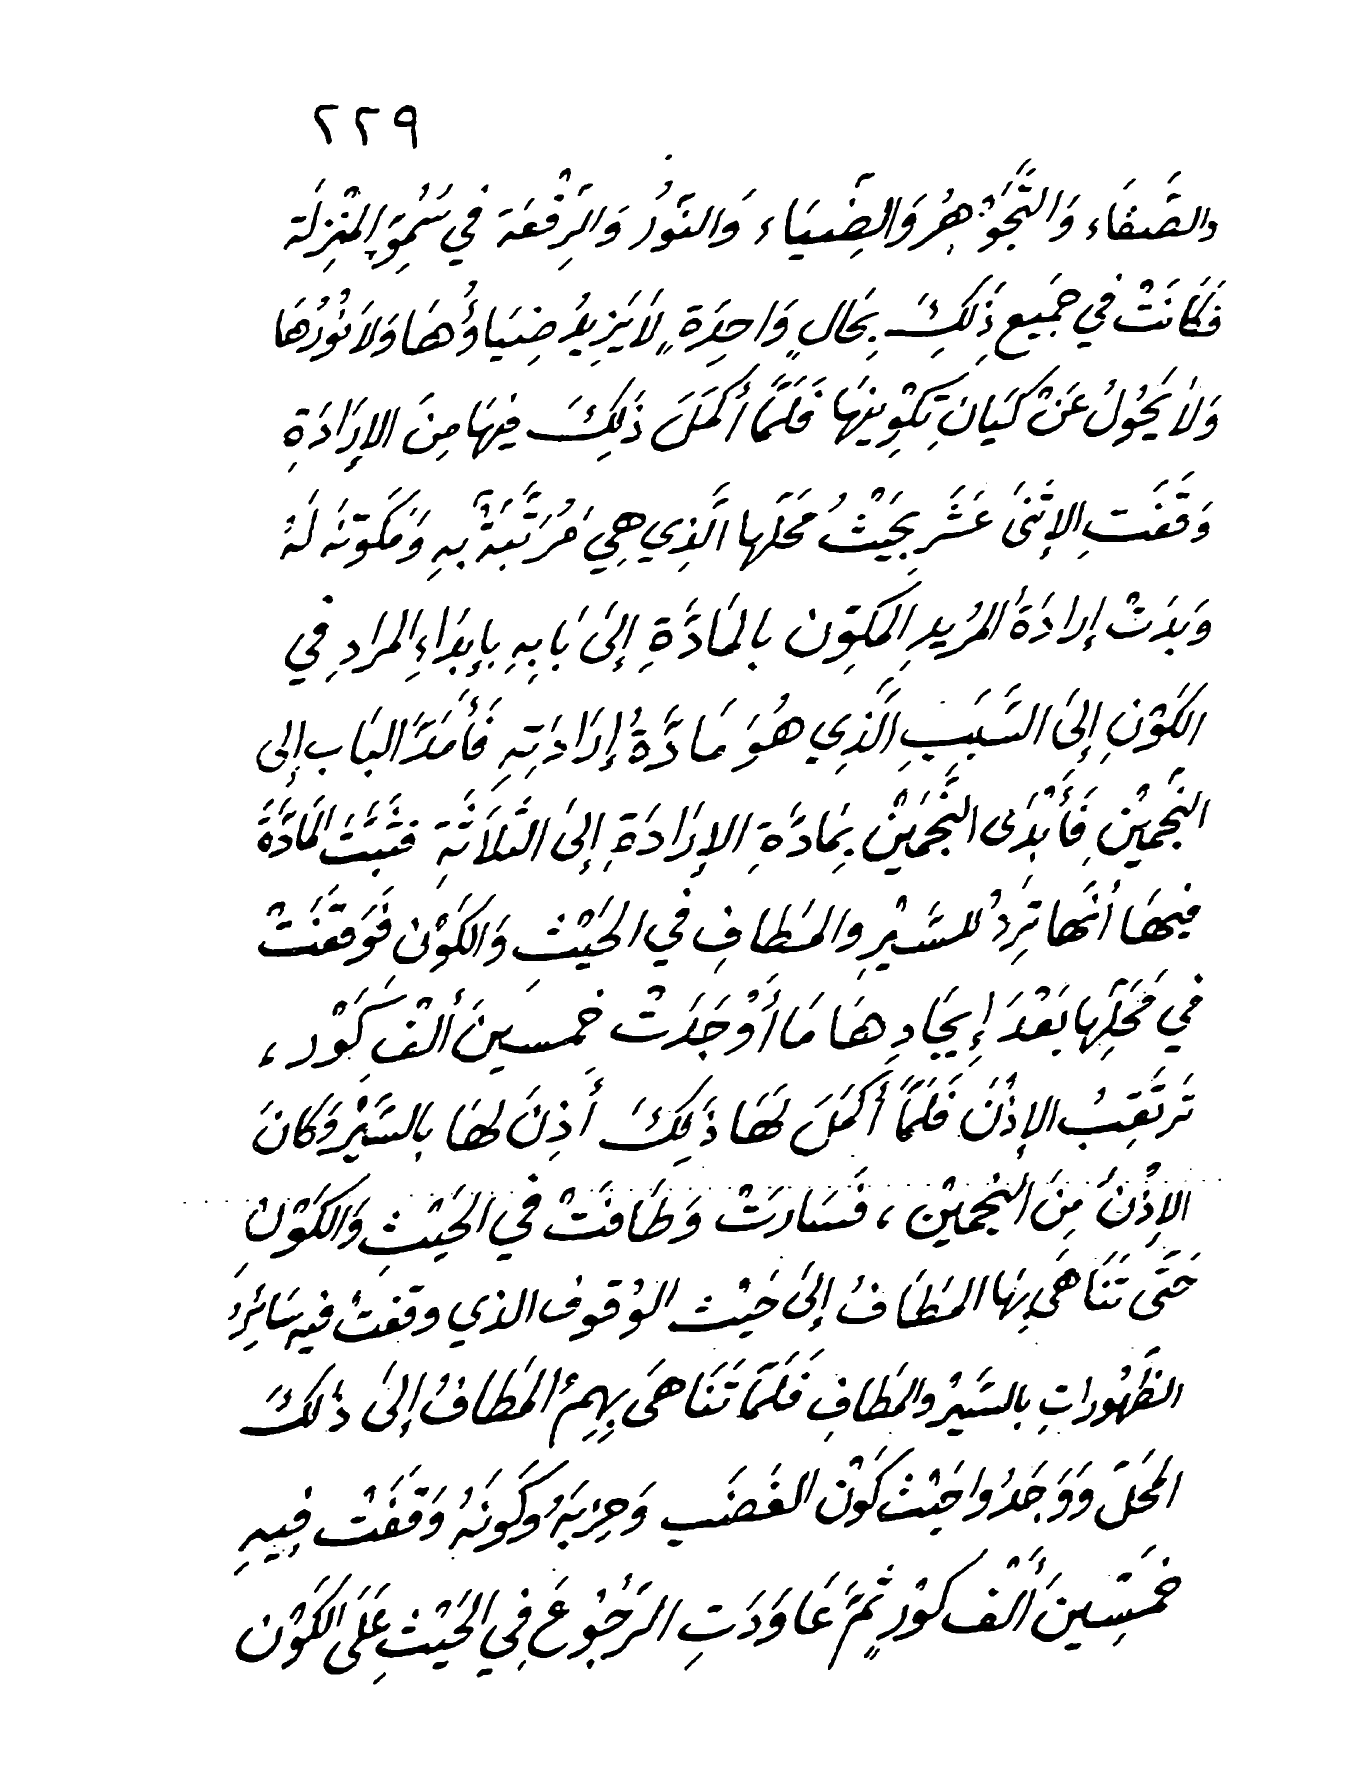 ٢٢٩
والصَّفَاء وَالتَّجَوْهِرُ وَالضِّيَاء وَالنُّورُ وَالرِّفْعَة فِي سُمُوِّ المنْزِلَة
فَكَانَتْ فِي جَمِيعِ ذَلِكَ بِحَالٍ وَاحِدَةٍ لاَ يَزِيدُ ضِيَاؤُهَا وَلاَ نُورُهَا
وَلاَ يَحُولُ عَنْ كَيَانِ تَكْوِينِهَا فَلَمَّا أَكْمَلَ ذَلِكَ فِيهَا مِنَ الإِرَادَةِ
وَقَفَتِ الإِثْنَى عَشَرَ بِحَيْثُ مَحَلِّهَا الَّذِي هِيَ مُرَتَّبَةٌ بِهِ وَمُكَوَّنَة لَهُ
وَبَدَتْ إِرَادَةُ المُرِيدِ المكَوِّن بِالمَادَّةِ إِلَى بَابِهِ بِإِبْدَاءِ المرَادِ فِي
الكَوْنِ إِلَى السَّبَبِ الَّذِي هُوَ مَادَّةُ إِرَادَتِهِ فَأَمَدَّ البَاب إِلى
النَّجْمَيْنِ فَأَبْدَى النَّجْمَيْنِ بِمَادَّةِ الإِرَادَةِ إِلَى الثَّلاَثَةِ فَثَبَتَتِ المَادَّةُ
فِيهَا أَنَّهَا تَرِدُ للسَّيْرِ والمَطَافِ فِي الحَيْثِ وَالكَوْنِ فَوَقَفَتْ
فِي مَحَلِّهَا بَعْدَ إِيجَادِهَا مَا أَوْجَدَتْ خَمْسِينَ أَلْفَ كَوْر ،
تَرتَقِبُ الإِذْنَ فَلَمَّا أَكْمَلَ لَهَا ذَلِكَ أَذِنَ لَهَا بِالسَّيْرِ وَكَانَ
الإِذْنُ مِنَ النجْمَيْنِ ، فَسَارَتْ وَطَافَتْ فِي الحَيْثِ وَالكَوْنِ
حَتَّى تَنَاهَى بِهَا المَطَافُ إِلَى حَيْث الوُقوف الذي وقفتْ فيه سَائِرُ
الظُّهُورَاتِ بالسَّيْرِ والمطَافِ فَلَمَّا تَنَاهَى بِهِمُ المَطَافُ إِلَى ذَلكَ
المَحَلّ وَوَجَدُوا حَيْثَ كَوْن الغَضَب وَحِزْبَهُ وَكَونَهُ وَقَفَتْ فِيهِ
خَمْسِينَ أَلْف كَوْرٍ ثُمَّ عَاوَدَتِ الرُّجُوعَ فِي الحَيْثِ عَلَى الكَوْن